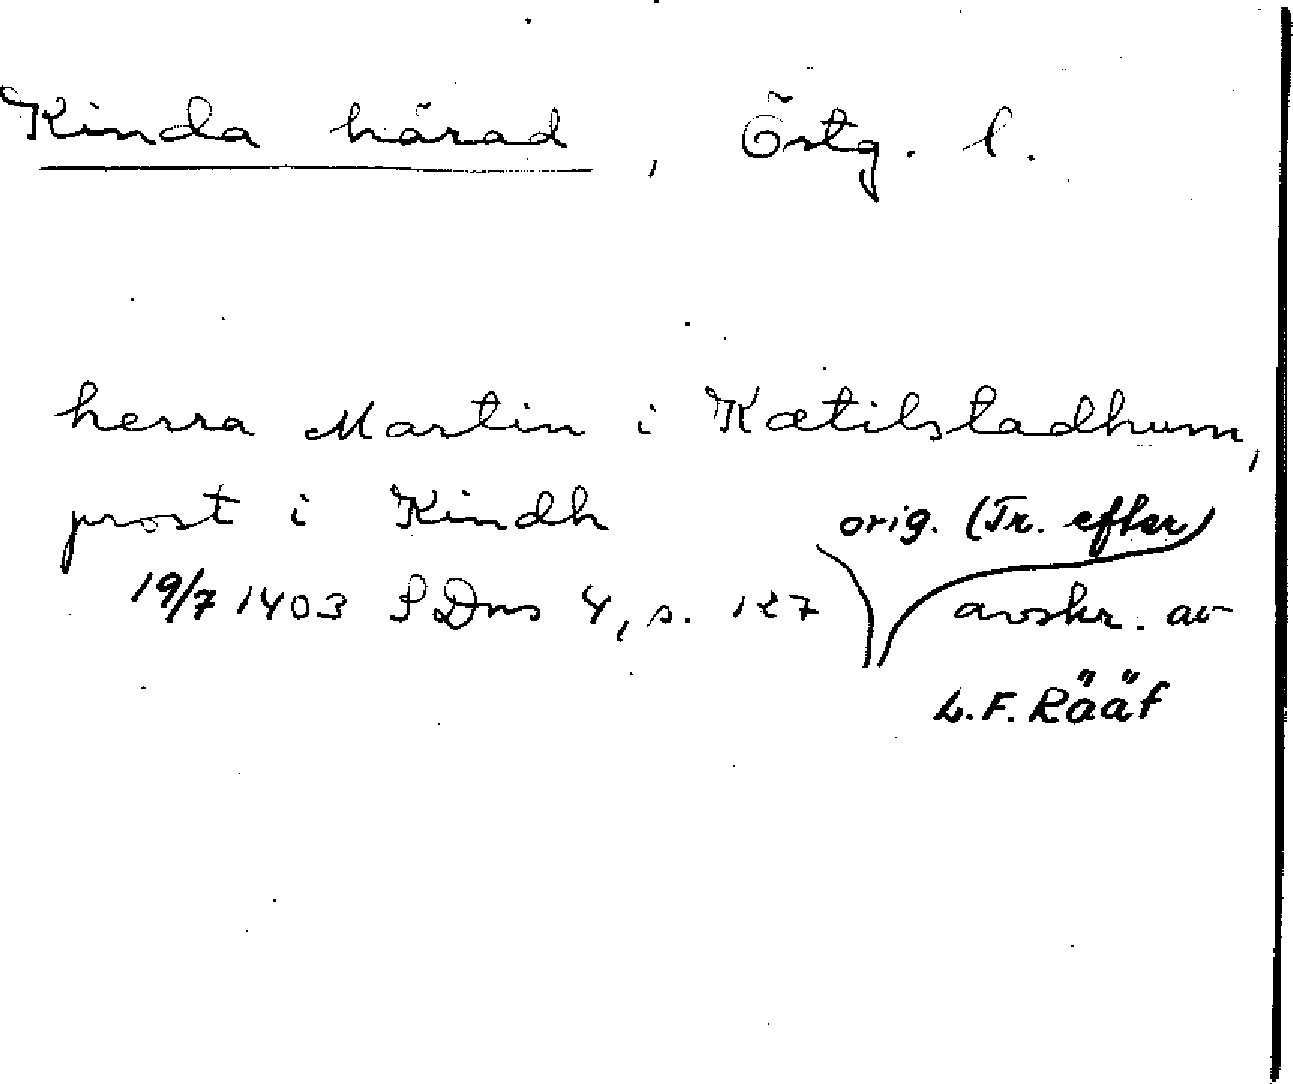 Kinda härad, Östg. l.
herra Martin i Kætilstadhum,
prost i Kindh
orig. (Tr. efter)
19/7 1403 SDns 4, s. 127 avskr. av
L.F. Rääf